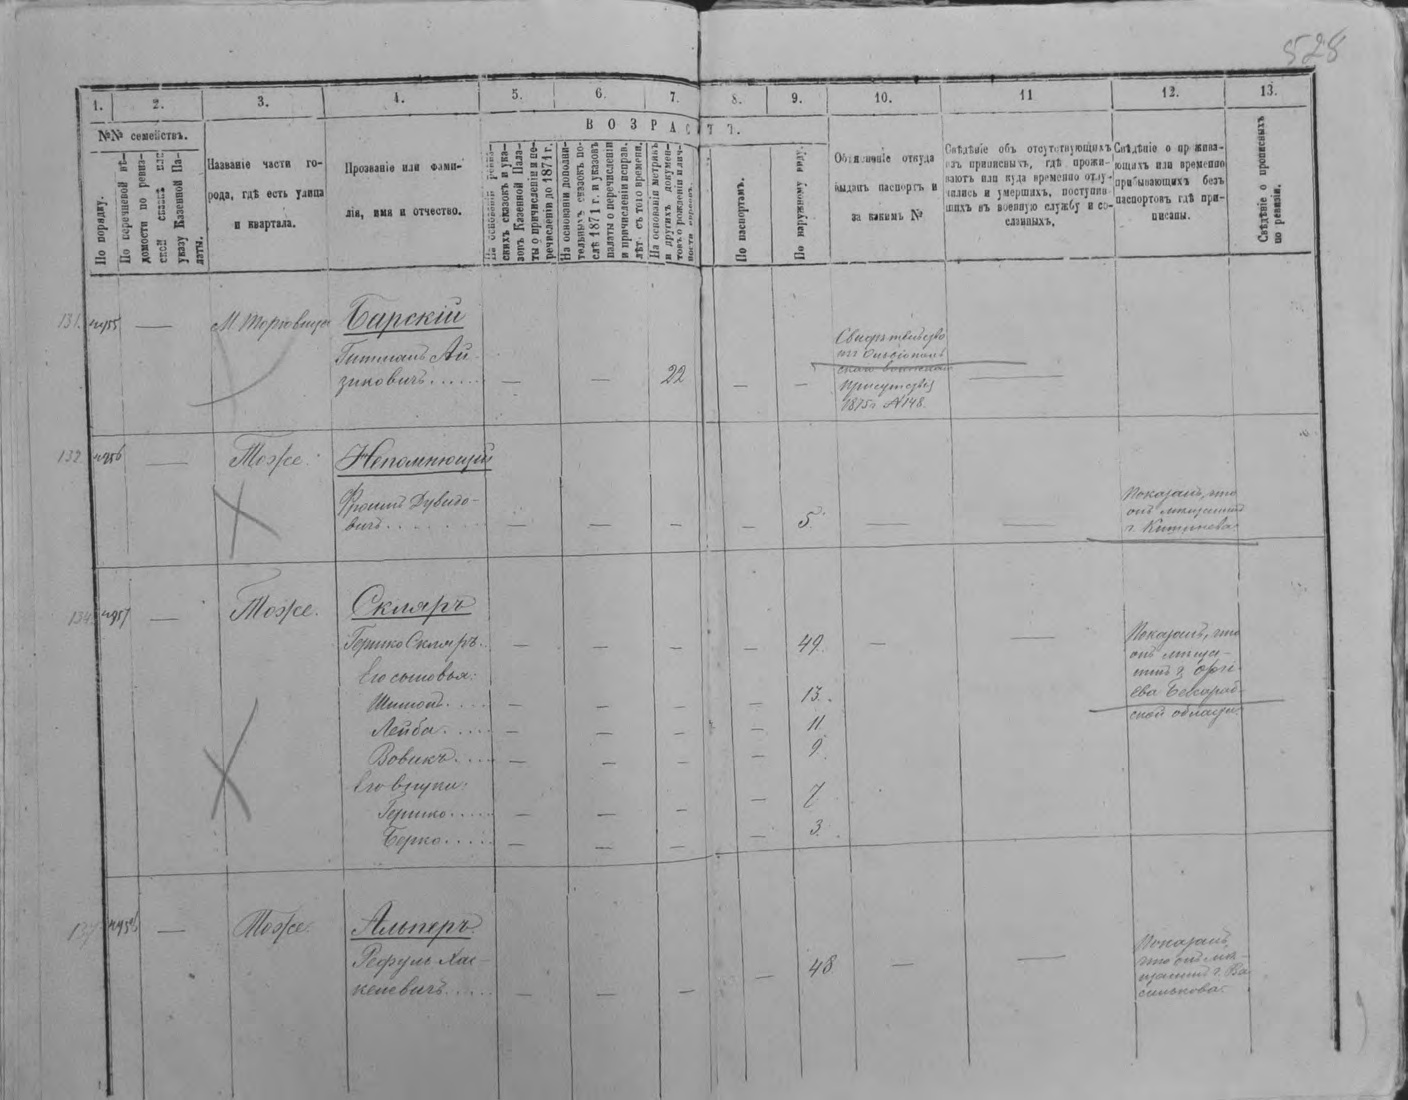 528
1. 2. 3. 4. 5. 6. 7. 8. 9. 10. 11 12. 13.
№№ семействъ.
ВОЗРАСТЪ.
По порядку.
По перечневой вѣ-
домости по ревиз-
ской сказкѣ или
указу Казенной Па-
латы.
Названіе части го-
рода, гдѣ есть улица
и квартала.
Прозваніе или фами-
лія, имя и отчество.
На основаніи ревиз-
скихъ сказокъ и ука-
зовъ Казенной Пала-
ты о причисленіи и пе-
речисленіи до 1871 г.
На основаніи дополни-
тельныхъ сказокъ по-
слѣ 1871 г. и указовъ
палаты о перечисленіи
и причисленіи исправ.
лѣтъ съ того времени.
На основаніи метрикъ
и другихъ докумен-
товъ о рожденіи и лич-
ности евреевъ.
По паспортамъ.
По наружному виду.
Объясненіе откуда
выданъ паспортъ и
за какимъ №
Свѣдѣніе объ отсутствующихъ
изъ приписныхъ, гдѣ прожи-
ваютъ или куда временно отлу-
чались и умершихъ, поступив-
шихъ въ военную службу и со-
сланныхъ.
Свѣдѣніе о прожива-
ющихъ или временно
прибывающихъ безъ
паспортовъ гдѣ при-
писаны.
Свѣдѣніе о прописныхъ
по ревизіи.
131. 4955 — М. Торговица Барскій
Гитманъ Ай-
зиковичъ..... — — 22 — —
Свидѣтельство
присутствія
1875 г. №148.
132 4956 — Тоже. Непомнющій
Фроимъ Дувидо-
вичъ....... — — — — 5. — —
Показалъ, что
онъ мѣщанинъ
г. Кишинева.
134 4957 — Тоже. Скляръ
Гершко Скляръ. — — — — 49. — —
Его сыновья:
Шимонъ.... — — — — 13.
Лейба..... — — — — 11
Вовикъ.... — — — — 9.
Его внуки:
Гершко..... — — — — 7
Берко..... — — — — 3.
Показалъ, что
онъ мѣща-
нинъ г. Орги-
ева Бессараб-
ской области.
137 4958 — Тоже. Альперъ
Рефулъ Хас-
келевичъ..... — — — — 48 — —
Показалъ,
что онъ мѣ-
щанинъ г. Ва-
силькова.